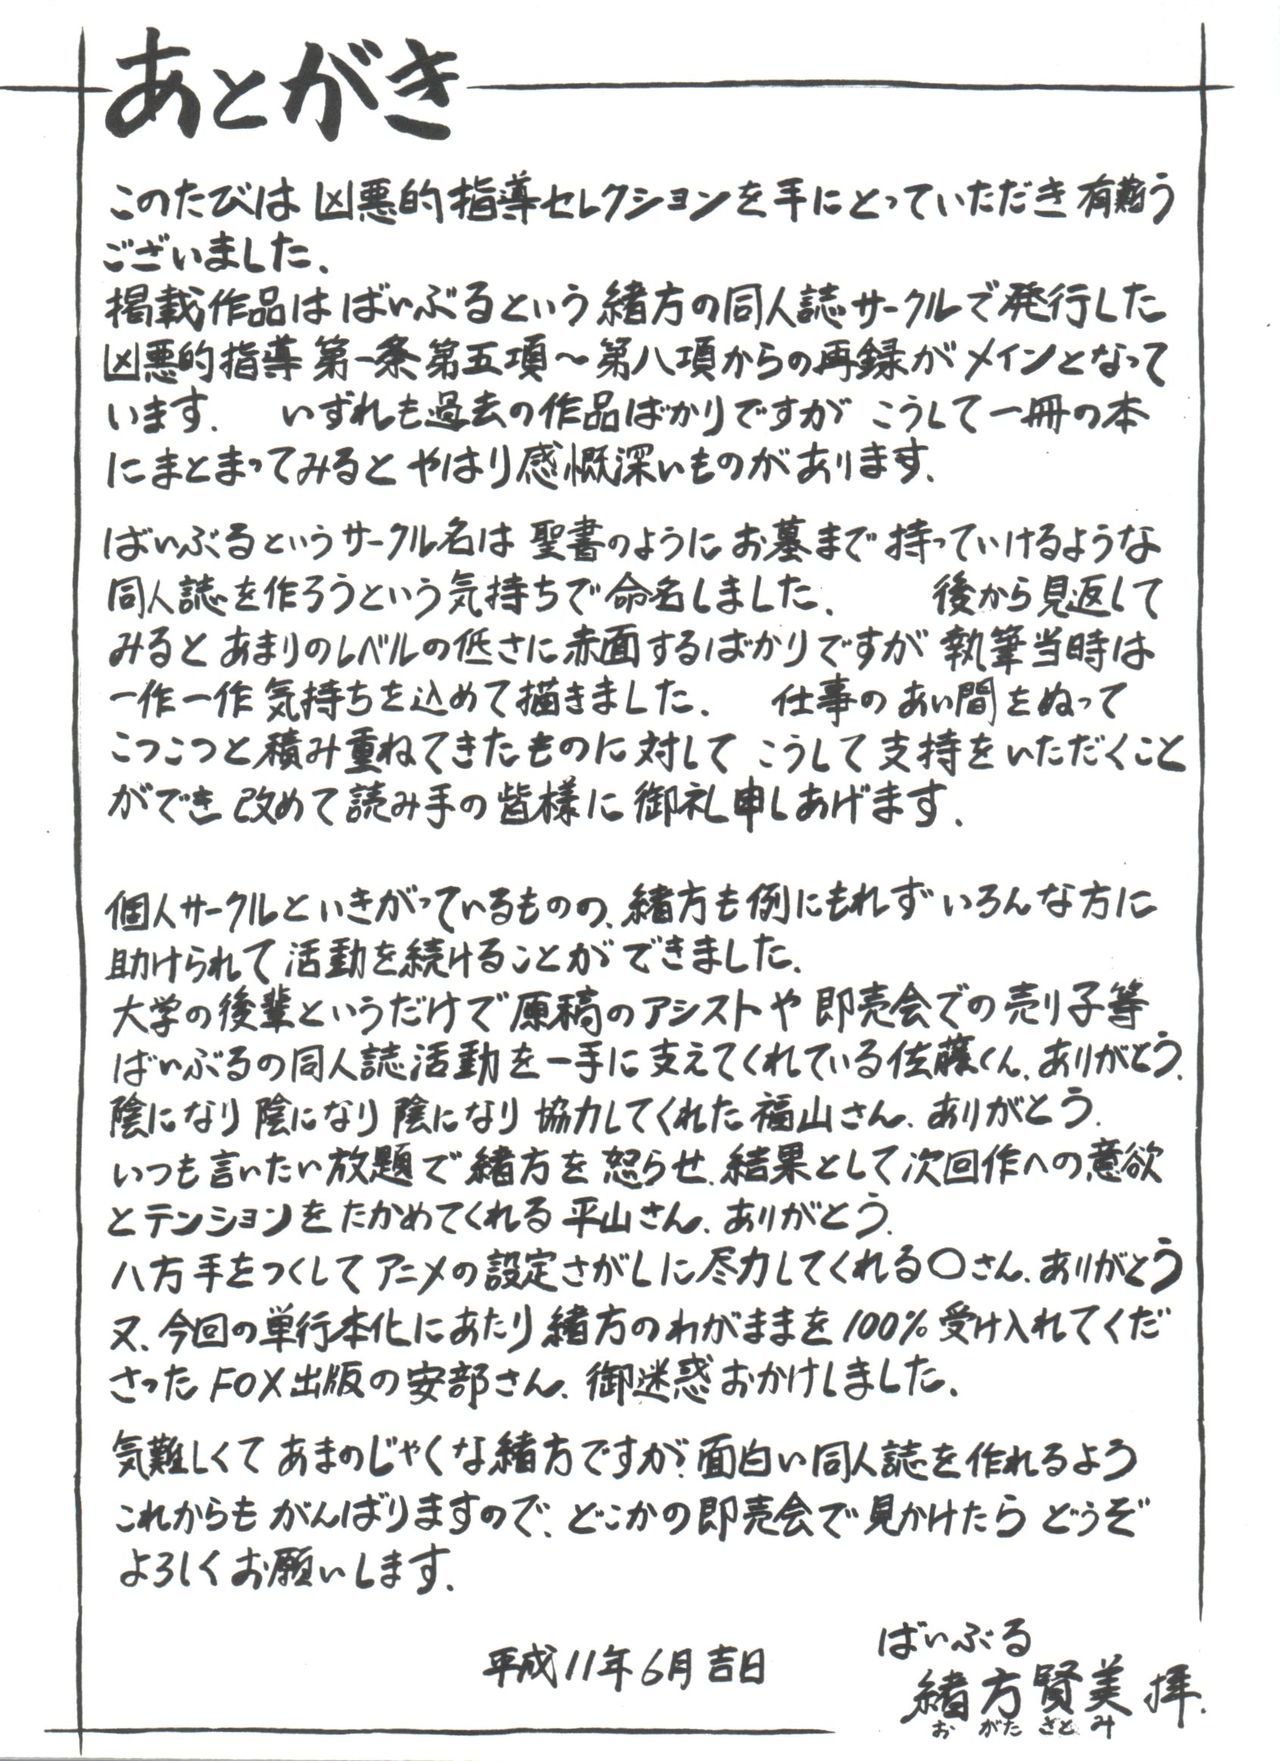 あとがき
このたびは 凶悪的指導セレクションを手にとっていただき 有難う
ございました.
掲載作品は ばいぶるという 緒方の同人誌サークルで発行した
凶悪的指導 第一条 第五項～第八項からの再録が メインとなって
います. いずれも過去の作品ばかりですが こうして一冊の本
にまとまってみると やはり感慨深いものがあります.
ばいぶるというサークル名は 聖書のように お墓まで 持っていけるような
同人誌を作ろうという気持ちで命名しました. 後から見返して
みると あまりのレベルの低さに赤面するばかりですが 執筆当時は
一作一作 気持ちを込めて描きました. 仕事の あい間をぬって
こつこつと積み重ねてきたものに 対して こうして支持をいただくこと
ができ 改めて読み手の皆様に 御礼申しあげます.
個人サークルといきがっているものの、緒方も例にもれず いろんな方に
助けられて 活動を続けることができました.
大学の後輩というだけで原稿のアシストや 即売会での売り子等
ばいぶるの同人誌活動を一手に支えてくれている佐藤くん. ありがとう.
陰になり 陰になり 陰になり 協力してくれた 福山さん. ありがとう.
いつも言いたい放題で緒方を 怒らせ. 結果として次回作への意欲
とテンションをたかめてくれる 平山さん. ありがとう.
八方手をつくしてアニメの設定さがしに尽力してくれる〇さん. ありがとう
又、今回の単行本化にあたり 緒方のわがままを 100% 受け入れてくだ
さった FOX出版の安部さん. 御迷惑おかけしました.
気難しくて あまのじゃくな緒方ですが、面白い同人誌を作れるよう
これからも がんばりますので、どこかの即売会で見かけたら どうぞ
よろしくお願いします.
平成11年6月吉日
ばいぶる
緒方賢美 拝.
おがたさとみ